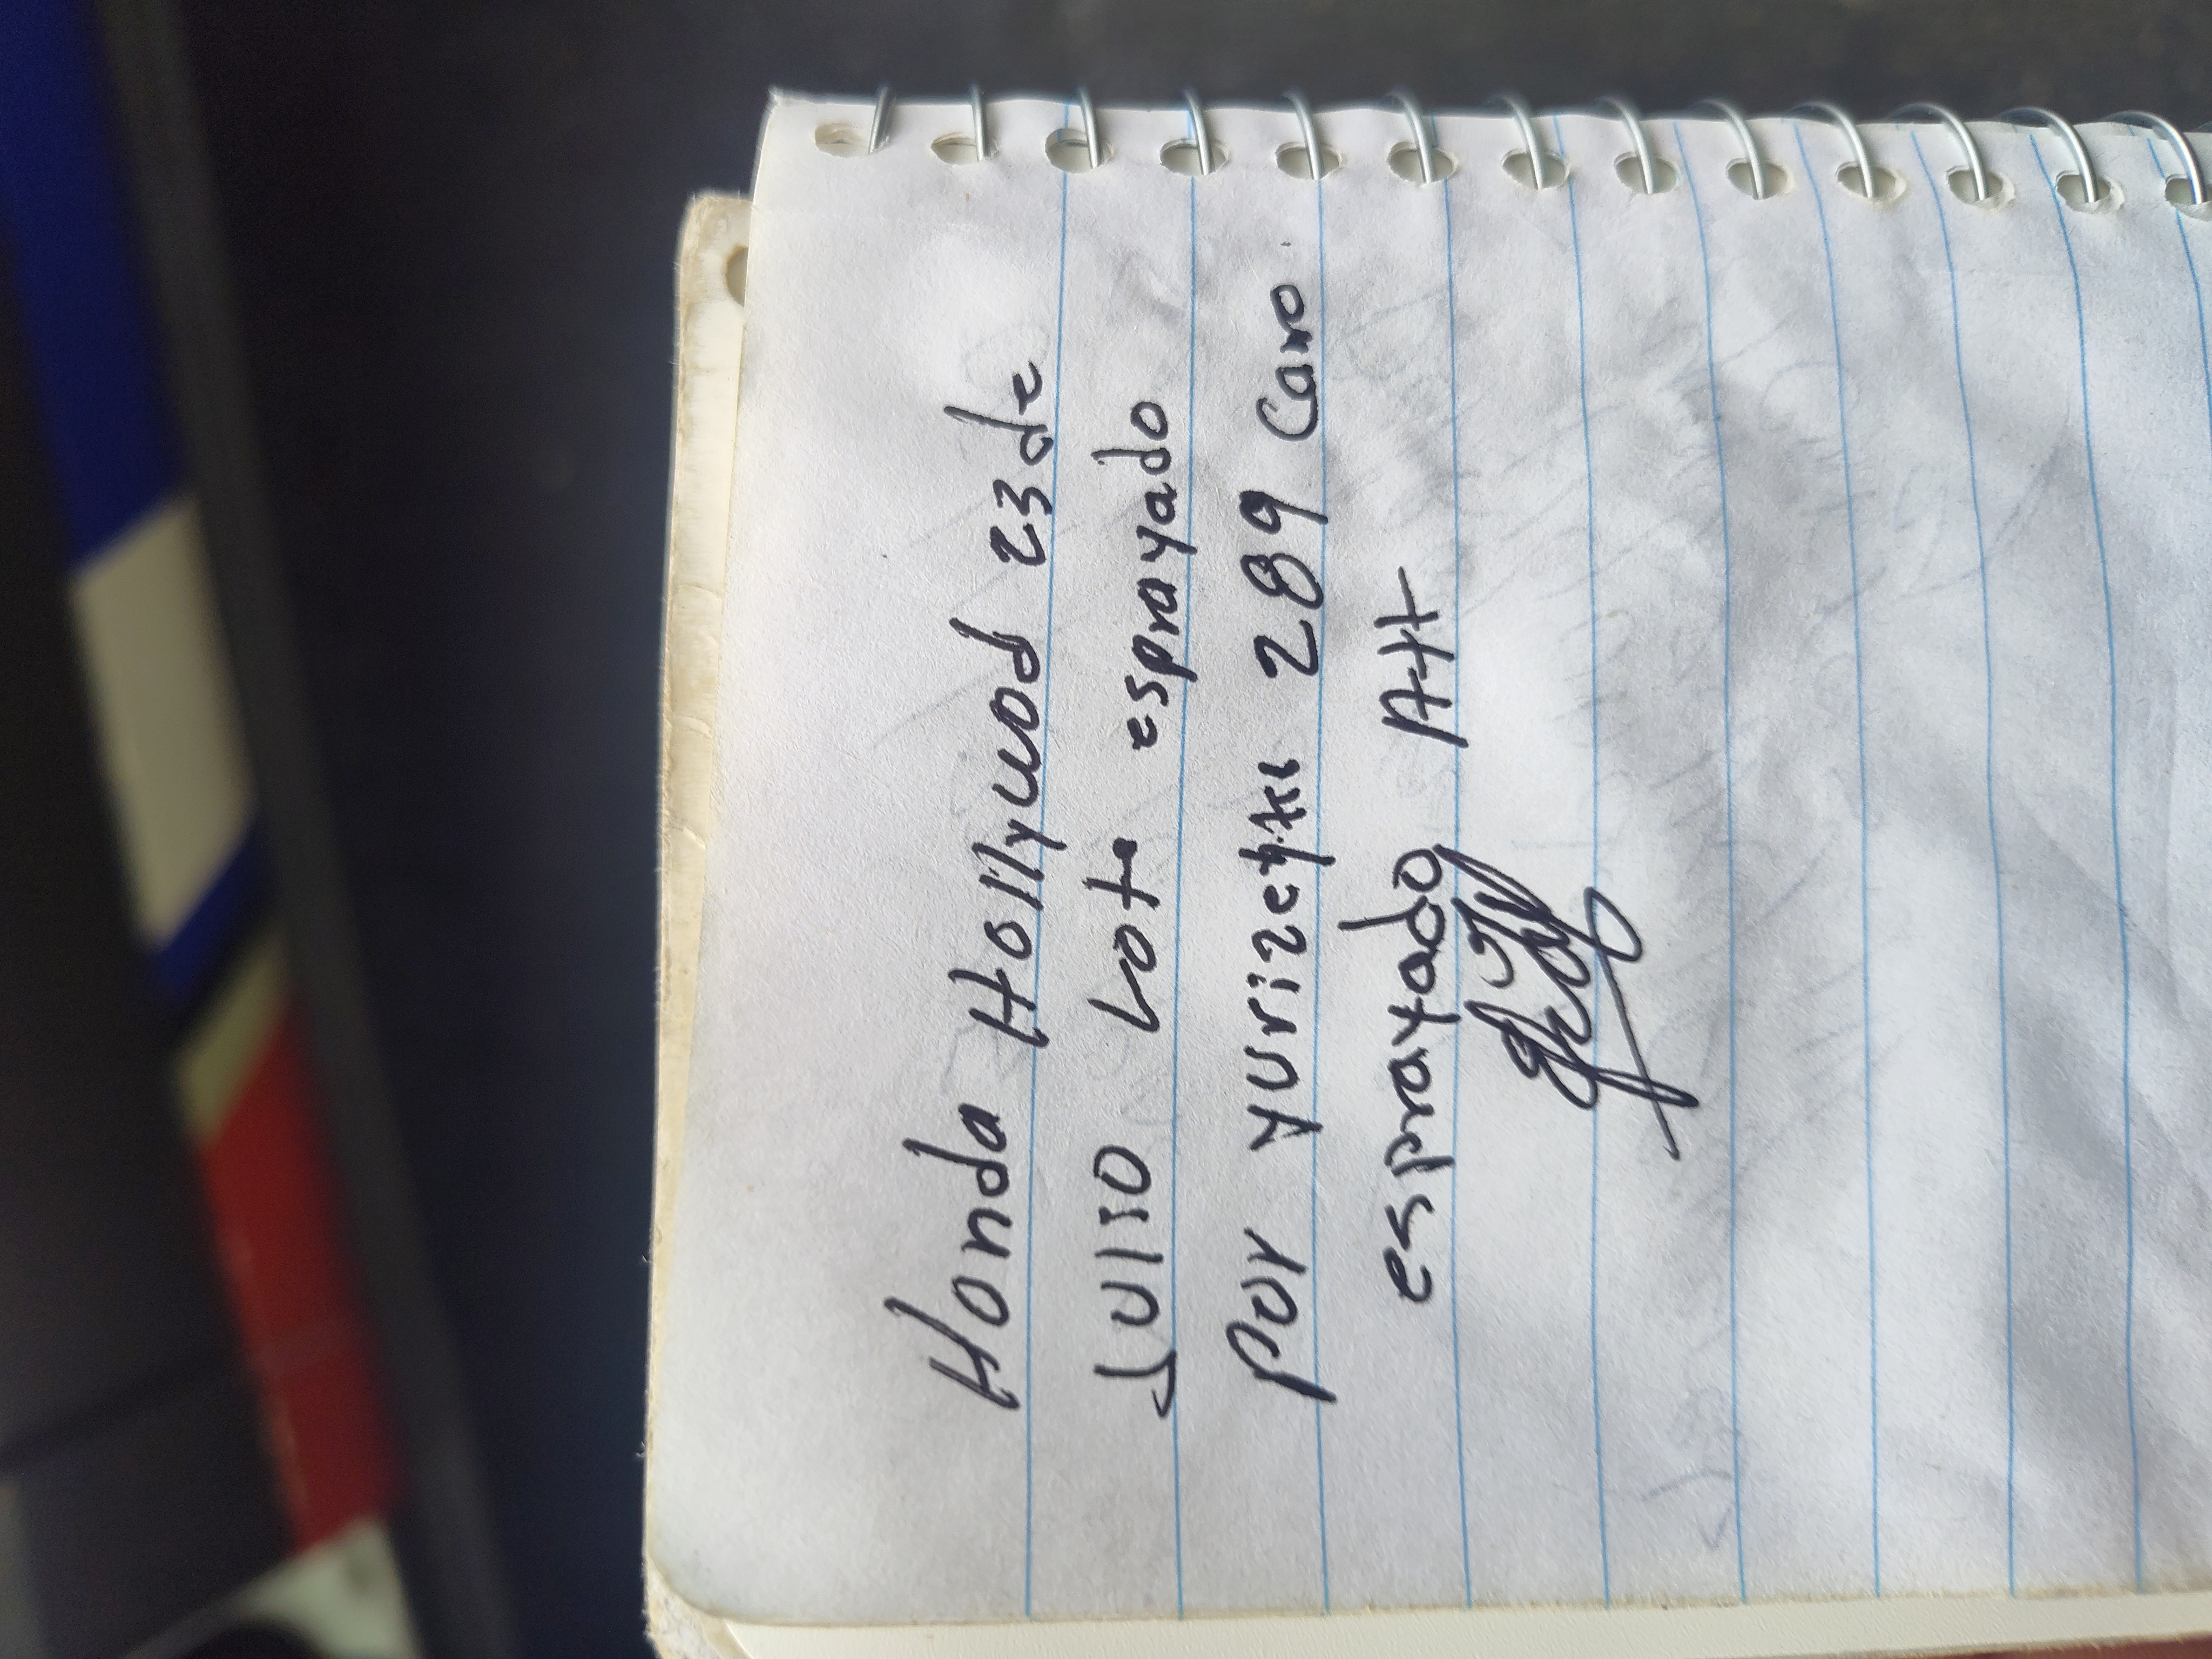 Honda Hollywod 23 de
Julio Lote esprayado
Por 289 Carro
esprayado Att